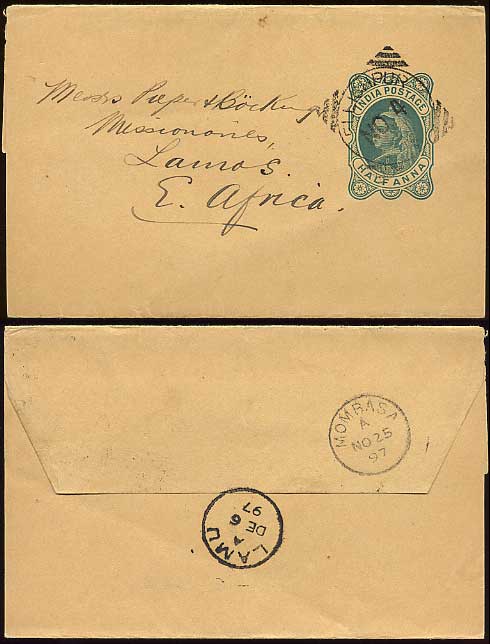 Messrs Pieper & Böcking
Missionaries,
Lamos.
E. Africa.
INDIA POSTAGE
HALF ANNA
NO 4
MOMBASA
A
NO 25
97
LAMU
A
DE 6
97